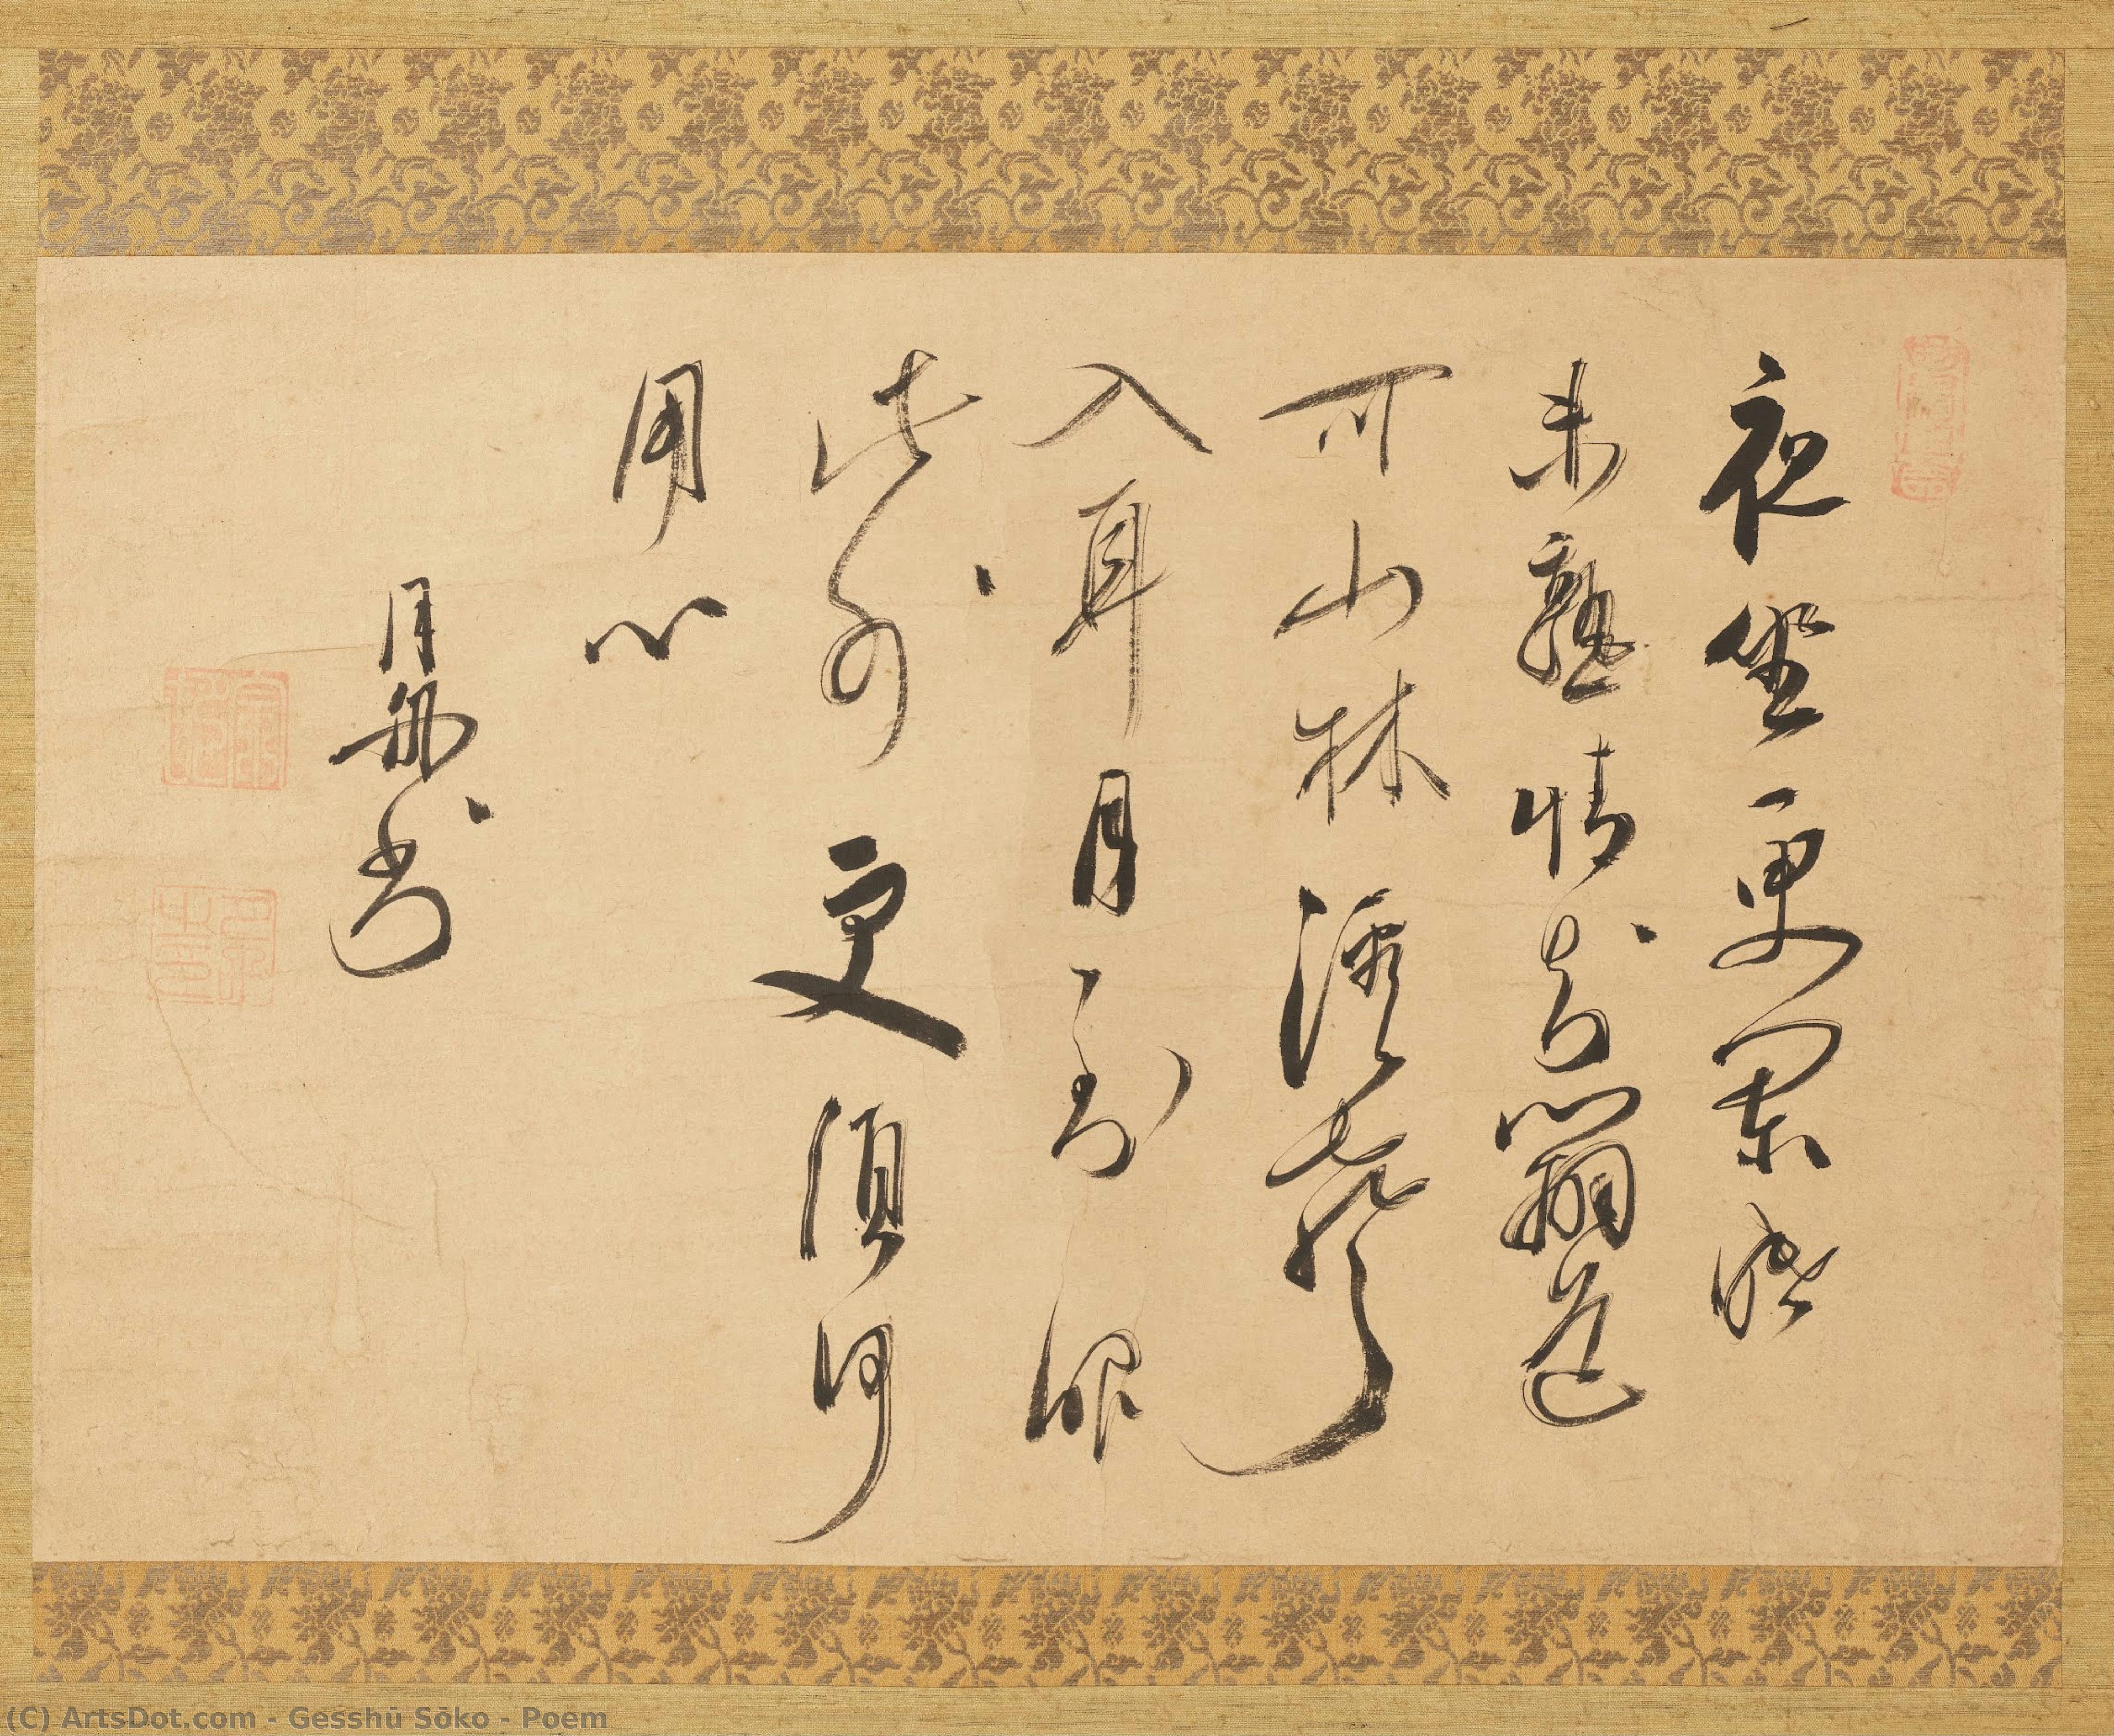 夜坐更闌眠
未熟情知道
可山林溪聲
入耳月到眼
此外更須何
用心
月舟書
(C) ArtsDot.com - Gesshū Sōko - Poem